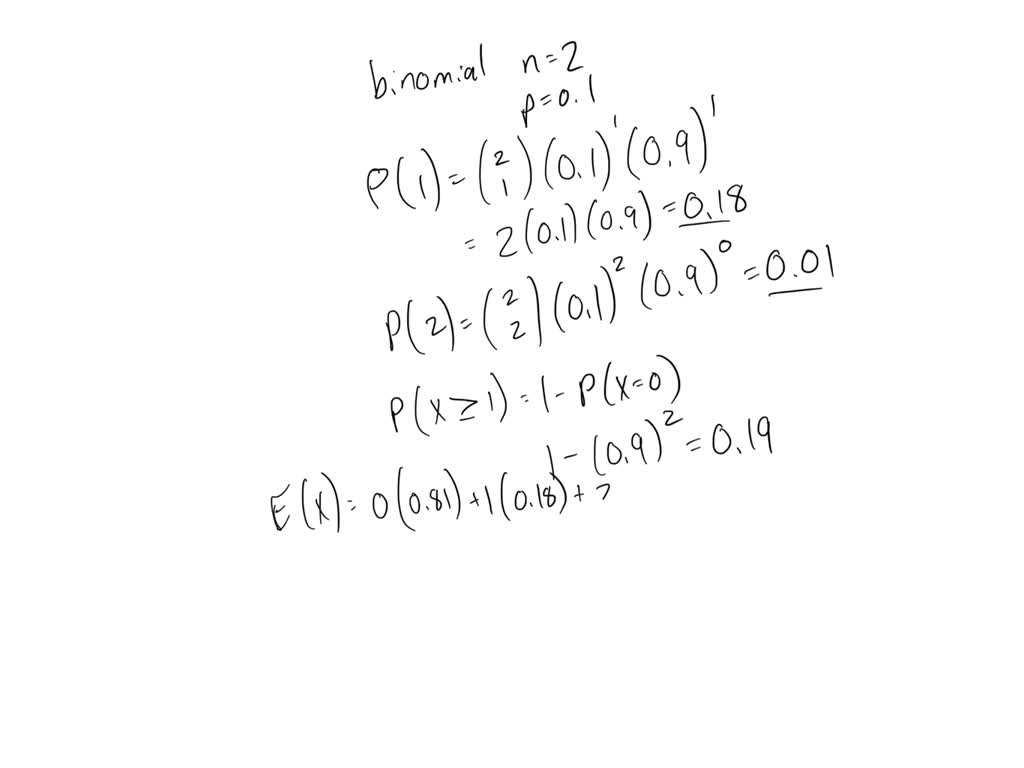 binomial n=2
p=0.1
P(1) = (2 1) (0.1)^1 (0.9)^1
= 2(0.1)(0.9) = 0.18
P(2) = (2 2) (0.1)^2 (0.9)^0 = 0.01
P(X ≥ 1) = 1 - P(X=0)
1 - (0.9)^2 = 0.19
E(X) = 0(0.81) + 1(0.18) +